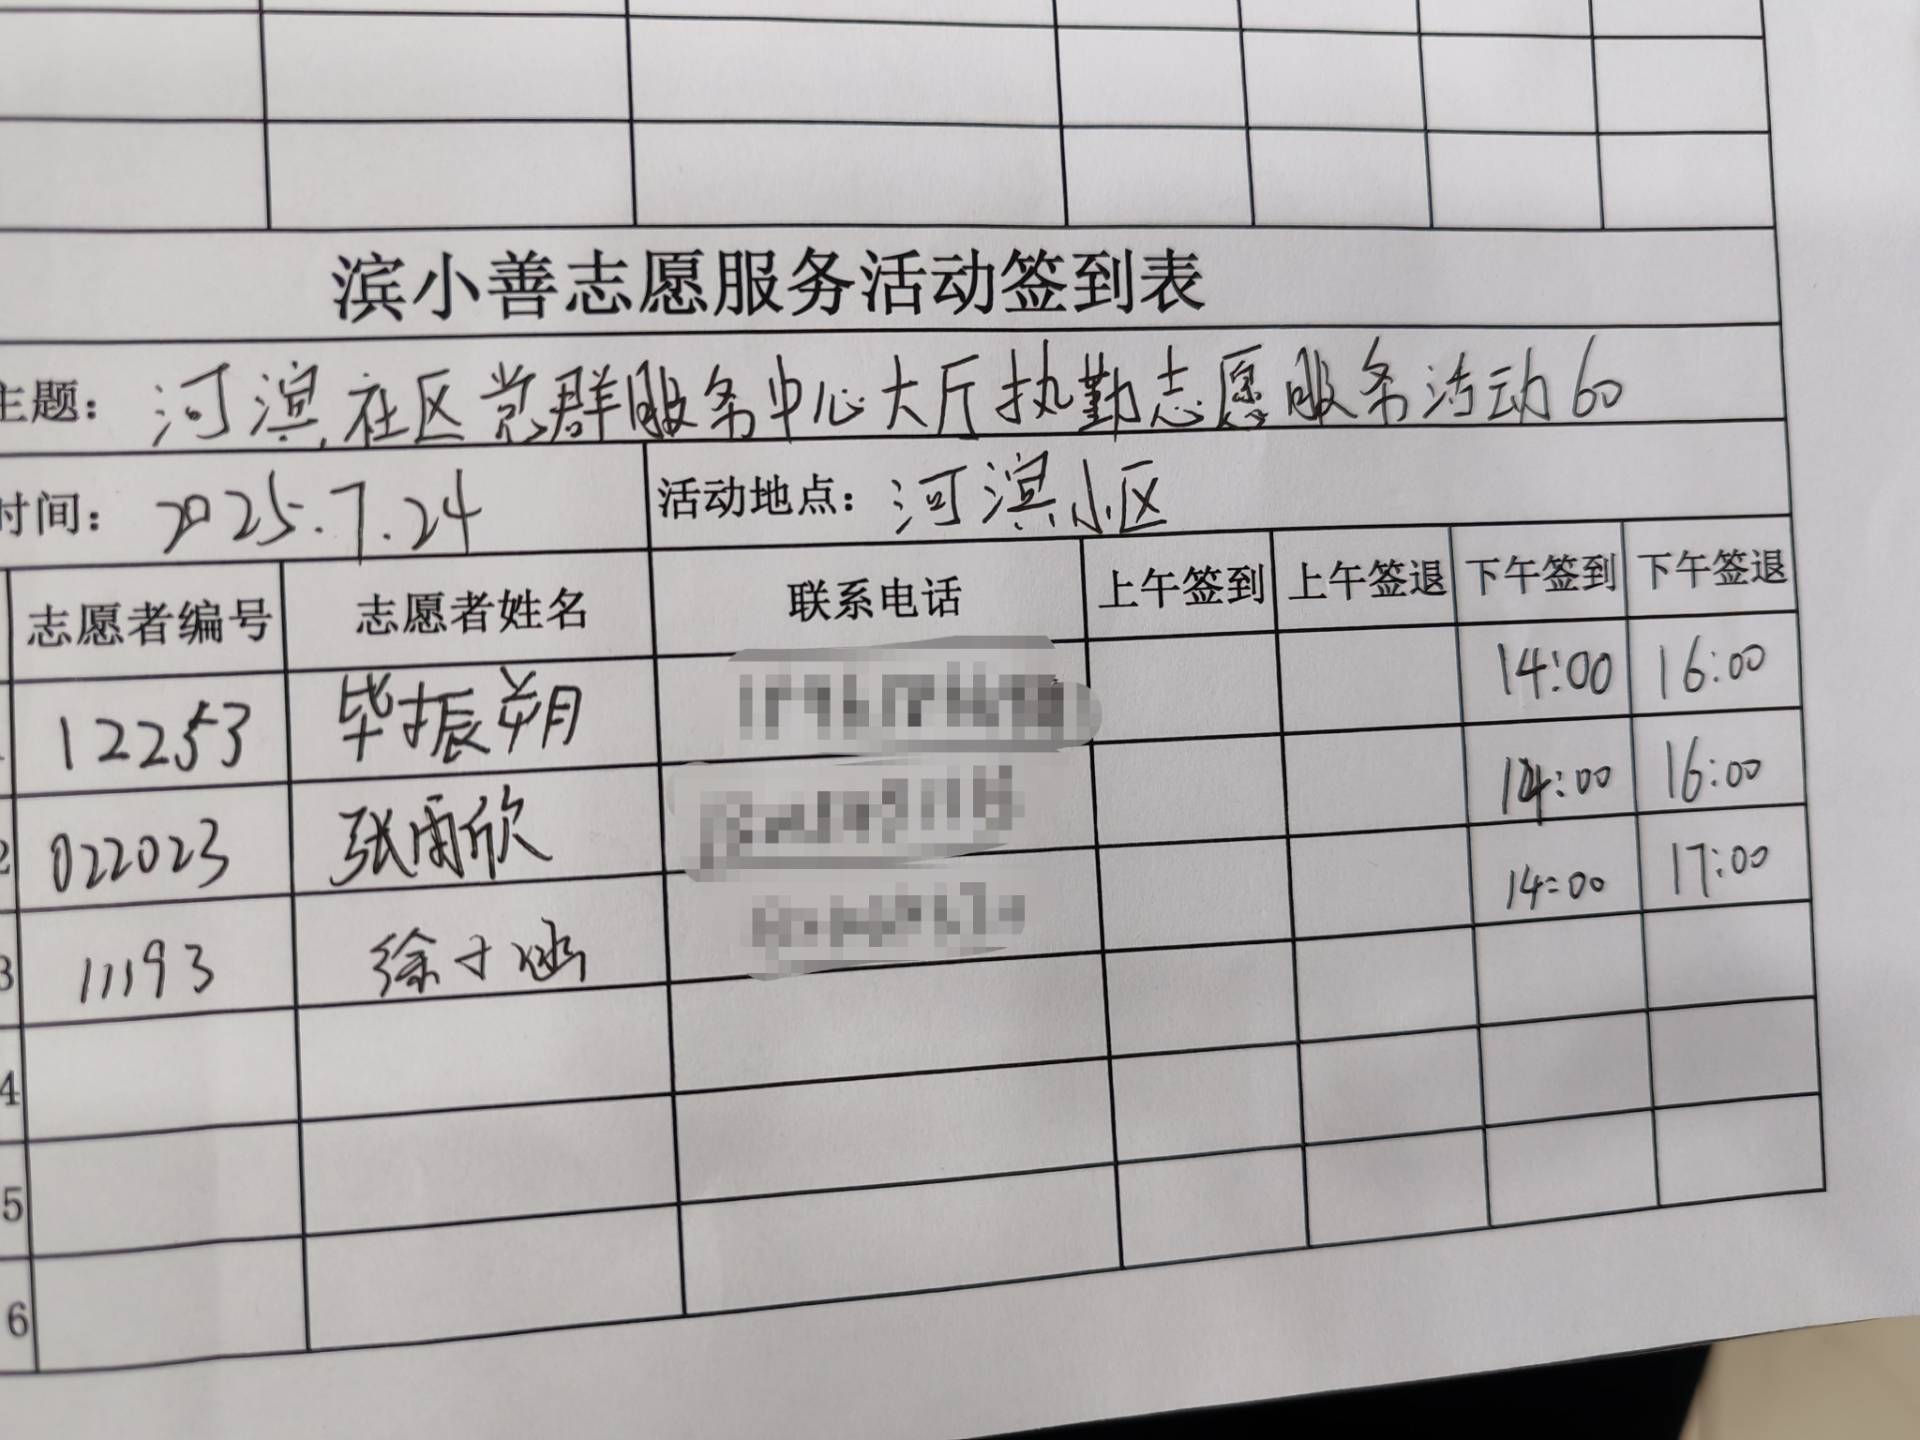 滨小善志愿服务活动签到表
主题：河滨社区党群服务中心大厅执勤志愿服务活动60
时间：2025.7.24 活动地点：河滨小区
志愿者编号 志愿者姓名 联系电话 上午签到 上午签退 下午签到 下午签退
12253 毕振朔 14:00 16:00
2 022023 张雨欣 14:00 16:00
3 11193 徐 涵 14:00 17:00
4
5
6